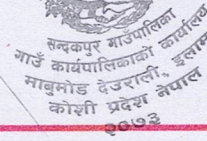 सन्दकपुर गाउँपालिका
गाउँ कार्यपालिकाको कार्यालय
माबुमोड देउराली, इलाम
कोशी प्रदेश नेपाल
२०७३